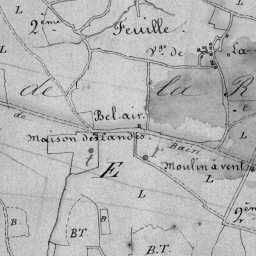 2ème
Feuille
Vge de La
L
L
de la R
de
e
Bel-air
Maison des landes
Bain
Moulin à vent
E
L
L
L
L
2ème
B
B
BT
B.T.
L